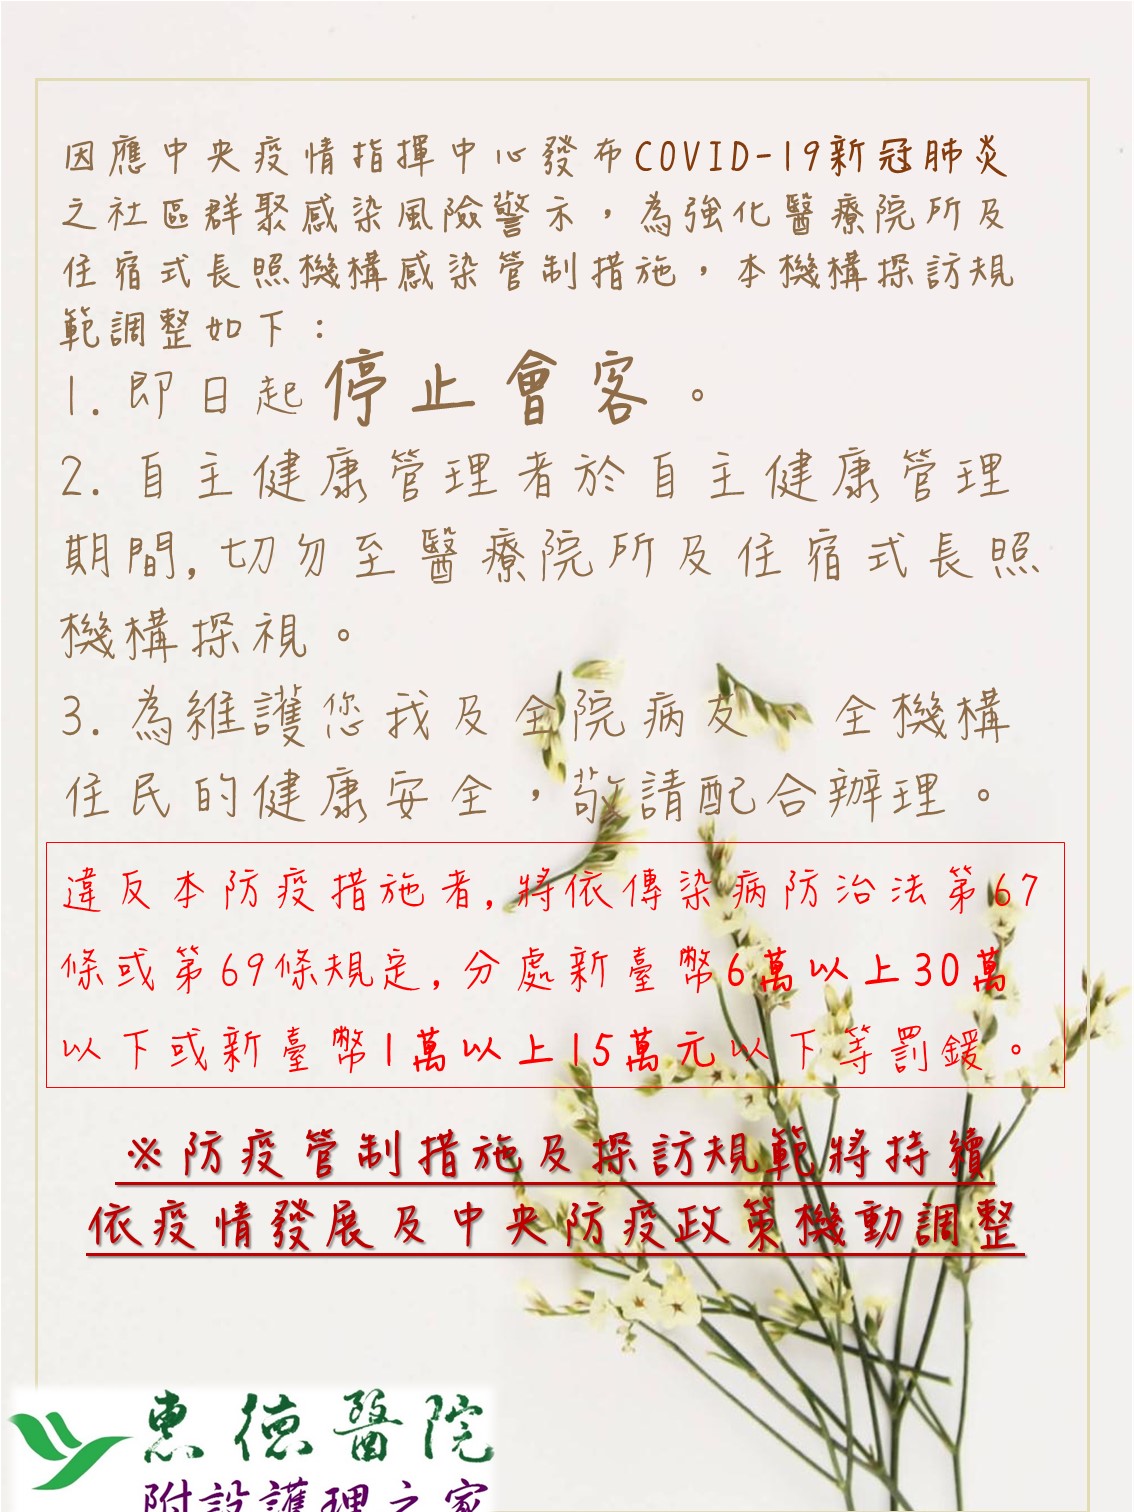 因應中央疫情指揮中心發布COVID-19新冠肺炎
之社區群聚感染風險警示，為強化醫療院所及
住宿式長照機構感染管制措施，本機構探訪規
範調整如下：
1. 即日起停止會客。
2. 自主健康管理者於自主健康管理
期間,切勿至醫療院所及住宿式長照
機構探視。
3. 為維護您我及全院病友、全機構
住民的健康安全，敬請配合辦理。
違反本防疫措施者,將依傳染病防治法第67
條或第69條規定,分處新臺幣6萬以上30萬
以下或新臺幣1萬以上15萬元以下等罰鍰。
※防疫管制措施及探訪規範將持續
依疫情發展及中央防疫政策機動調整
惠德醫院
附設護理之家